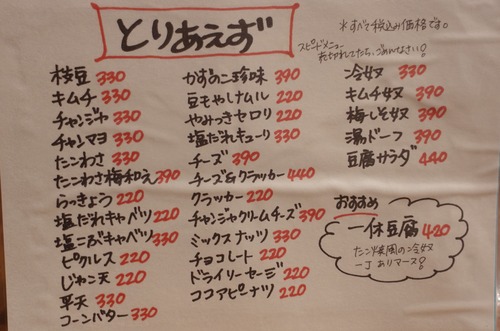 とりあえず
*すべて税込み価格です。
スピードメニュー
売り切れてたら、ごめんなさい!
枝豆 330
キムチ 330
チャンジャ 330
チャンマヨ 330
たこわさ 330
たこわさ梅和え 390
らっきょう 220
塩だれキャベツ 220
塩こぶキャベツ 330
ピクルス 220
じゃこ天 220
平天 330
コーンバター 330
かずのこ珍味 390
豆もやしナムル 220
やみつきセロリ 220
塩だれキューリ 330
チーズ 390
チーズ&クラッカー 440
クラッカー 220
チャンジャクリームチーズ 390
ミックスナッツ 330
チョコレート 220
ドライソーセージ 220
ココアピーナツ 220
冷奴 330
キムチ奴 390
梅しそ奴 390
湯ドーフ 390
豆腐サラダ 440
おすすめ
一休豆腐 420
たこ焼風の冷奴
一丁ありマース!